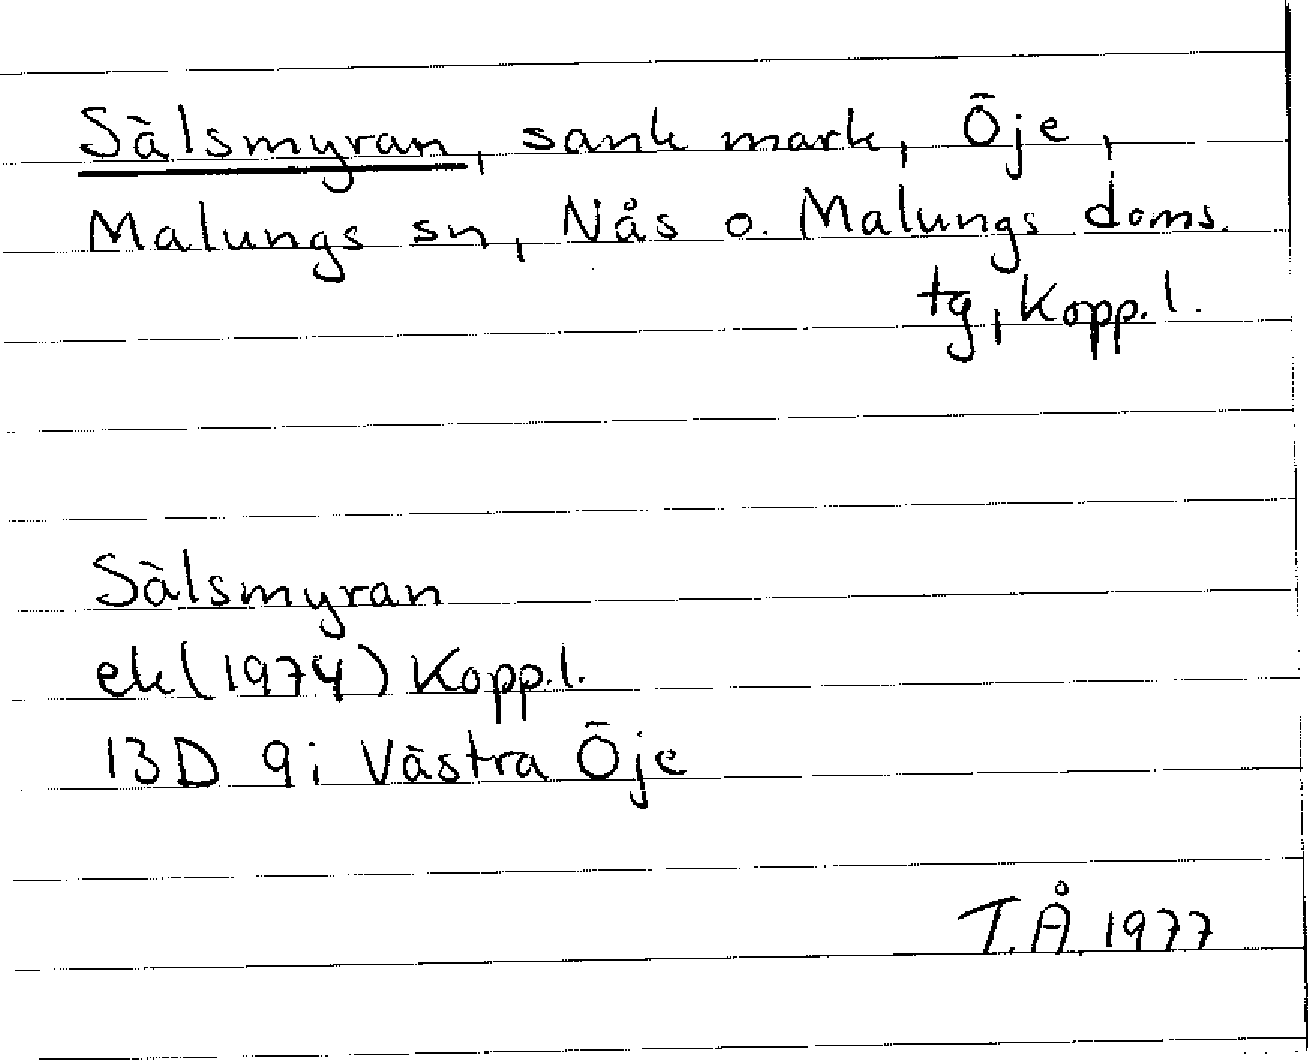 Sälsmyran, sank mark, Öje,
Malungs sn, Nås o. Malungs doms.
tg, Kopp. l.
Sälsmyran
ek (1974) Kopp.l.
13D 9i Västra Öje
T.Å. 1977